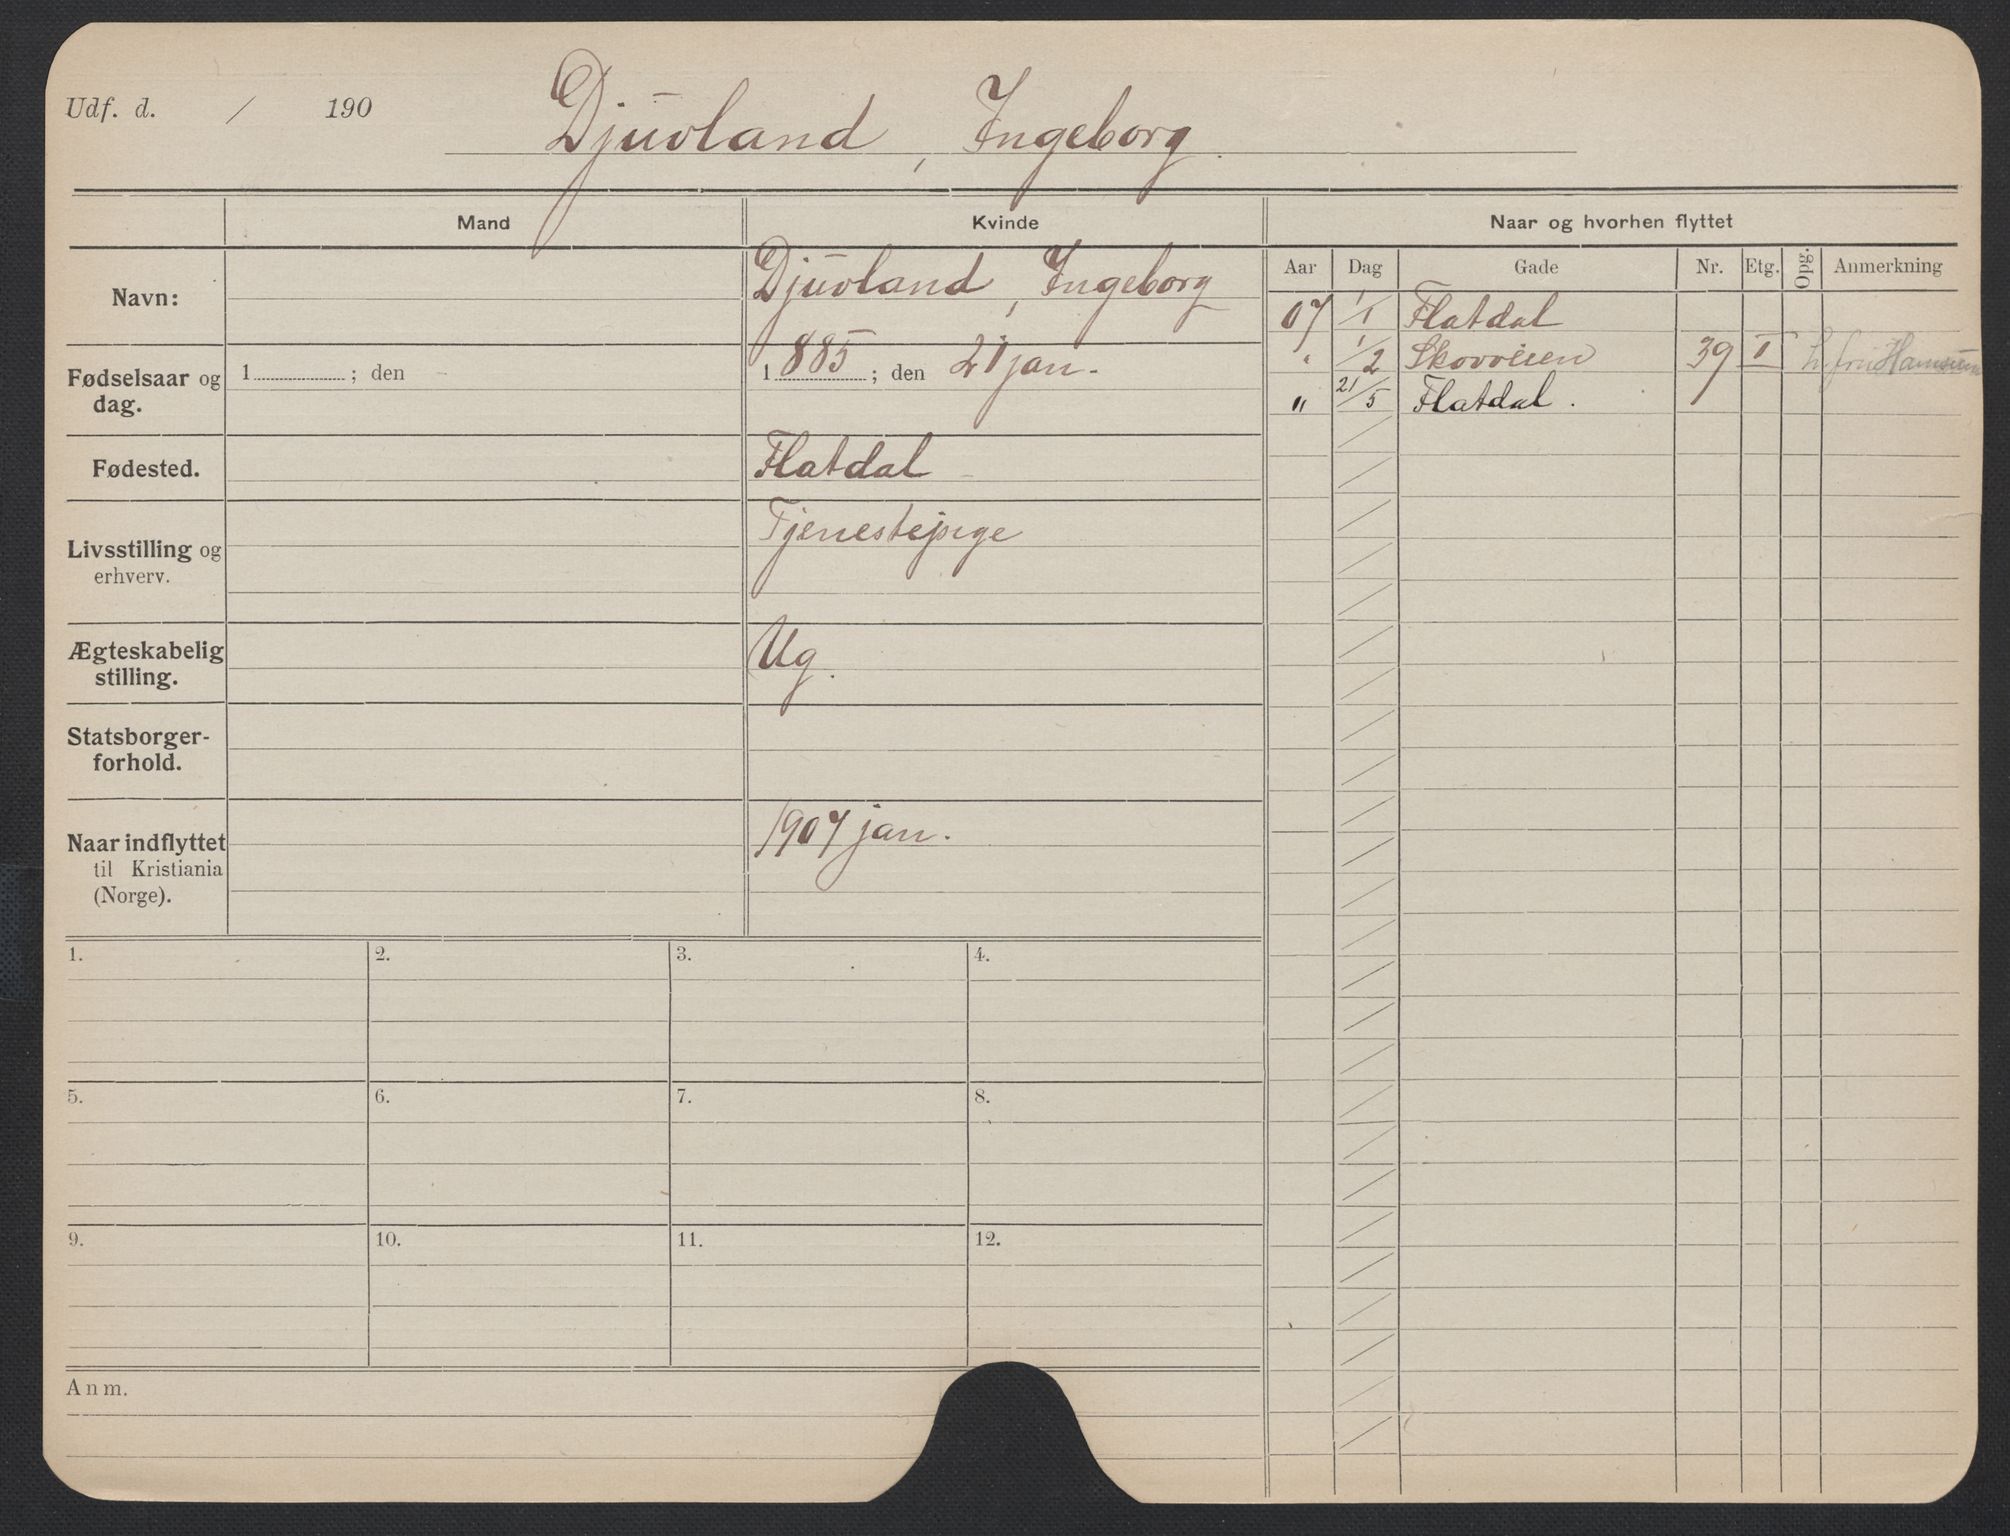 Udf. d. / 190
Djuvland, Ingeborg.
Mand Kvinde Naar og hvorhen flyttet
Aar Dag Gade Nr. Etg. Opg. Anmerkning
Navn: Djuvland, Ingeborg
07 1/1 Flatdal
" 1/2 Skovveien 39 II h. fru Hamsun
" 21/5 Flatdal.
Fødselsaar og 1 ; den 1885 ; den 21 jan.
dag.
Fødested. Flatdal
Livsstilling og Tjenestepige
erhverv.
Ægteskabelig Ug.
stilling.
Statsborger-
forhold.
Naar indflyttet 1907 jan.
til Kristiania
(Norge).
1. 2. 3. 4.
5. 6. 7. 8.
9. 10. 11. 12.
Anm.